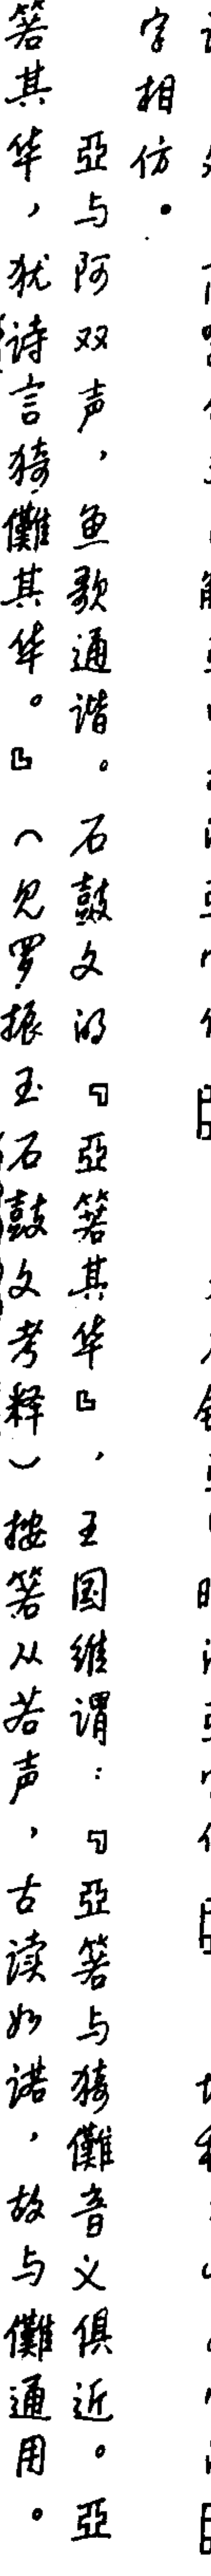 字相仿。
亞与阿双声，鱼歌通谐。石鼓文的『亞箬其华』，王国维谓：『亞箬与猗儺音义俱近。亞
箬其华，犹诗言猗儺其华。』（见罗振玉石鼓文考释）按箬从若声，古读如诺，故与儺通用。